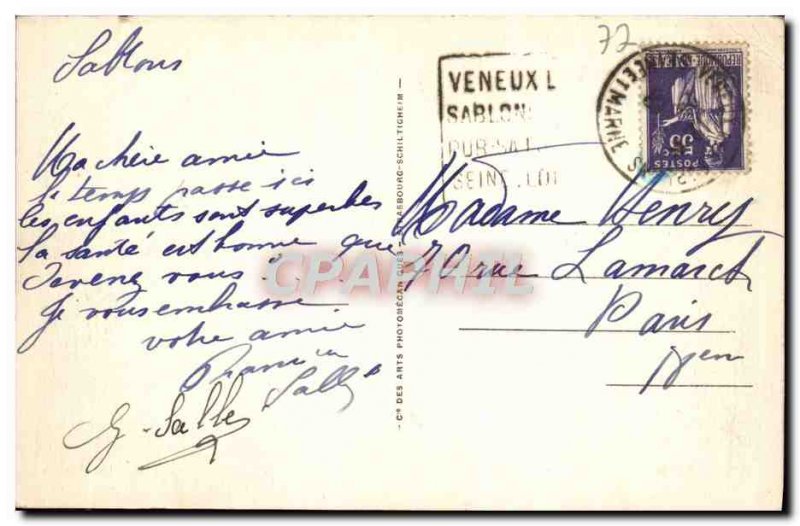 Sablons
Ma chère amie
le temps passe ici
les enfants sont superbes
la santé est bonne que
devenez vous?
je vous embrasse
votre amie
Salles
G. Salles
77
VENEUX L
SABLON
SEINE LOI
SEINE ET MARNE
POSTES
55
Madame Henry
70 rue Lamarck
Paris
18em
CIE DES ARTS PHOTOMÉCANIQUES - STRASBOURG-SCHILTIGHEIM -
CPAPHIL